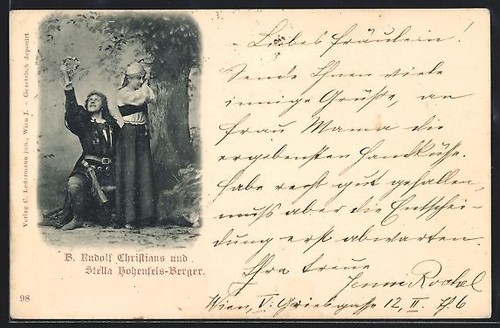 Liebes Fräulein!
Sende Ihnen viele
innige Grüße, an
Frau Mama die
ergebensten Handküsse.
Habe recht gut gefallen,
muss aber die Entschei-
dung erst abwarten.
Ihre treue
Wien, V. Griesgasse 12, II.
Verlag C. Ledermann jun., Wien I. - Gesetzlich deponirt
B. Rudolf Christians und
Stella Hohenfels-Berger.
98